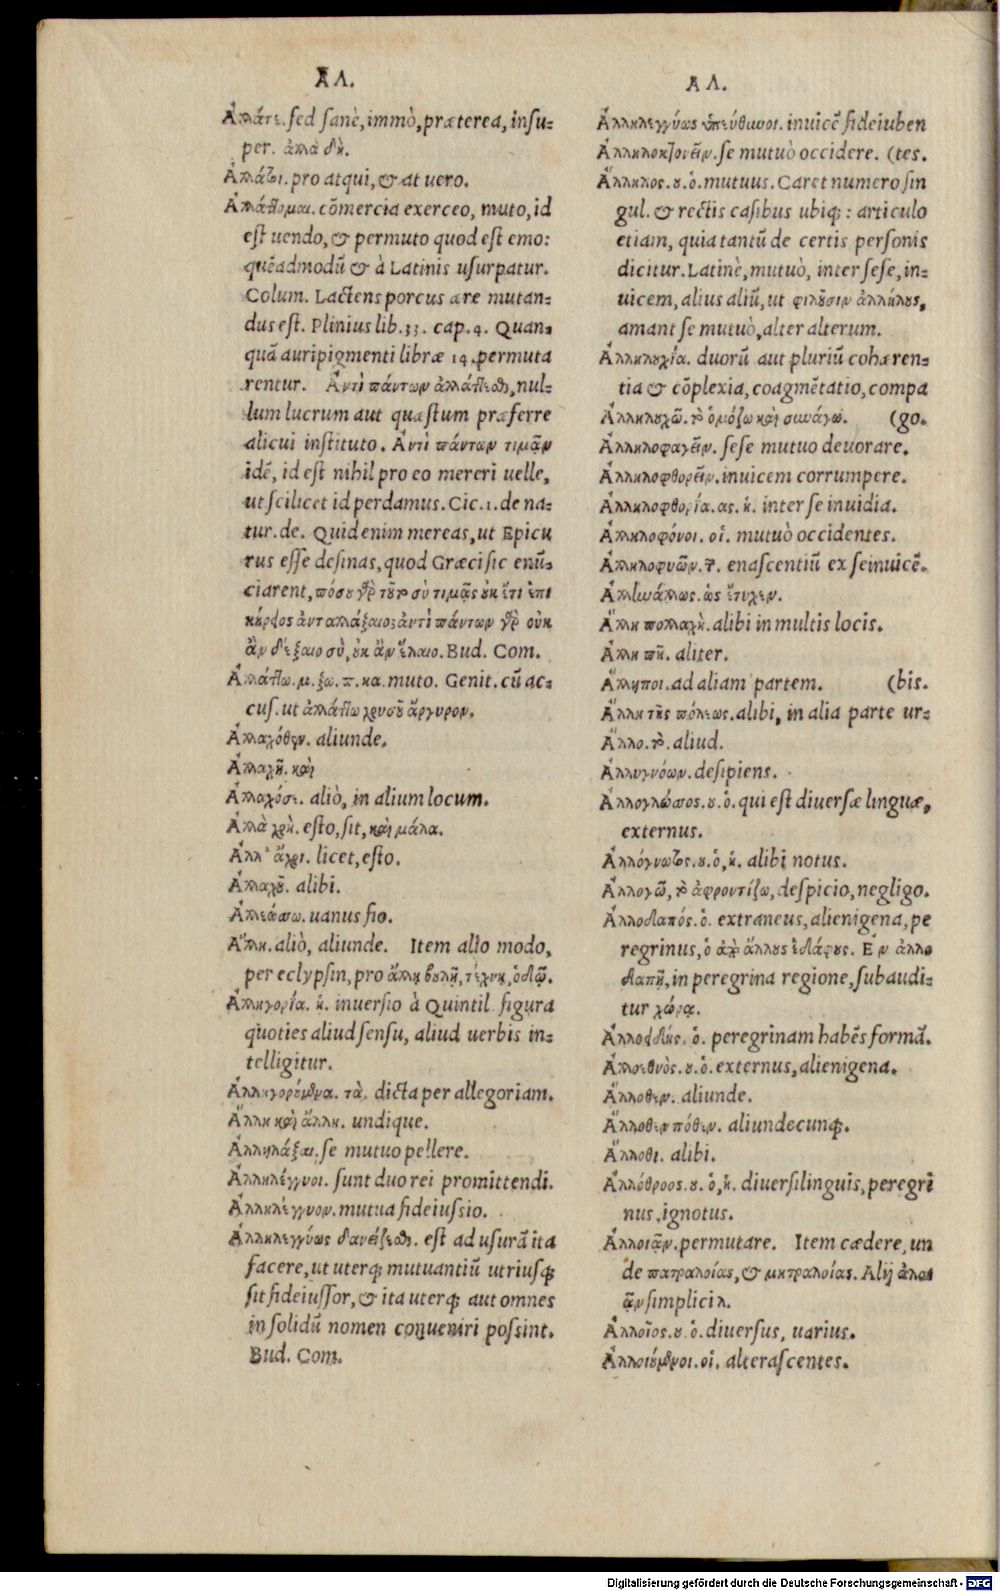 ΑΛ.
Ἀλλάτε. sed sanè, immò, præterea, insu-
per. ἀλλὰ δὴ.
pro atqui, & at uero.
Ἀλλάττομαι. cōmercia exerceo, muto, id
est uendo, & permuto quod est emo:
quēadmodū & à Latinis usurpatur.
Colum. Lactens porcus ære mutan-
dus est. Plinius lib.33. cap.4. Quan-
quā auripigmenti libræ 14. permuta
rentur. Ἀντὶ πάντων ἀλλάττεσθαι, nul-
lum lucrum aut quæstum præferre
alicui instituto. Ἀντὶ πάντων τιμᾶν
idē, id est nihil pro eo mereri uelle,
ut scilicet id perdamus. Cic.1. de na-
tur. de. Quid enim mereas, ut Epicu
rus esse desinas, quod Græci sic enū-
ciarent, πόσου γὰρ τοῦτο σὺ τιμᾷς οὐκ ἔτι ἐπι
κούρειος ἀνταλλάξαιο; ἀντὶ πάντων γὰρ οὐκ
ἂν δέξαιο σὺ, οὐκ ἂν ἕλοιο. Bud. Com.
Ἀλλάττω. μ. ξω. π. χα. muto. Genit. cū ac-
cus. ut ἀλλάττω χρυσοῦ ἄργυρον.
Ἀλλαχόθεν. aliunde.
Ἀλλαχῆ. καὶ
Ἀλλαχόσε. aliò, in alium locum.
Ἀλλὰ χρή. esto, sit, καὶ μάλα.
licet, esto.
Ἀλλαχοῦ. alibi.
uanus fio.
Ἄλλῃ. aliò, aliunde. Item alio modo,
per eclypsin, pro ἄλλῃ βουλῇ, τέχνῃ, ὁδῷ.
Ἀλληγορία. ἡ. inuersio à Quintil. figura
quoties aliud sensu, aliud uerbis in-
telligitur.
Ἀλληγορούμενα. τὰ. dicta per allegoriam.
Ἄλλῃ καὶ ἄλλῃ. undique.
Ἀλληλάξαι. se mutuo pellere.
Ἀλληλέγγυοι. sunt duo rei promittendi.
Ἀλληλέγγυον. mutua fideiussio.
Ἀλληλεγγύως δανείζεσθαι. est ad usurā ita
facere, ut uterq; mutuantiū utriusq;
sit fideiussor, & ita uterq; aut omnes
in solidū nomen conueniri possint.
Bud. Com.
ΑΛ.
Ἀλληλεγγύως ὑπεύθυνοι. inuicē fideiuben
Ἀλληλοκτονεῖν. se mutuò occidere. (tes.
Ἄλληλος. ου. ὁ. mutuus. Caret numero sin
gul. & rectis casibus ubiq; : articulo
etiam, quia tantū de certis personis
dicitur. Latinè, mutuò, inter sese, in-
uicem, alius aliū, ut φιλοῦσιν ἀλλήλους,
amant se mutuò, alter alterum.
Ἀλληλουχία. duorū aut pluriū cohæren-
tia & cōplexia, coagmētatio, compa
Ἀλληλουχῶ. τὸ ἁρμόζω καὶ συνάγω. (go.
Ἀλληλοφαγεῖν. sese mutuo deuorare.
Ἀλληλοφθορεῖν. inuicem corrumpere.
Ἀλληλοφθορία. ας. ἡ. inter se inuidia.
Ἀλληλοφόνοι. οἱ. mutuò occidentes.
Ἀλληλοφυῶν. τ. enascentiū ex se inuicē.
Ἀλλινάλλως. ὡς ἔτυχεν.
Ἄλλῃ πολλαχῆ. alibi in multis locis.
Ἄλλῃ πῆ. aliter.
Ἄλλῃποι. ad aliam partem. (bis.
Ἄλλῃ τῆς πόλεως. alibi, in alia parte ur-
Ἄλλο. τὸ. aliud.
desipiens.
Ἀλλόγλωσσος. ου. ὁ. qui est diuersæ linguæ,
externus.
Ἀλλόγνωτος. ου. ὁ, ἡ. alibi notus.
Ἀλλογῶ, τὸ ἀφροντίζω, despicio, negligo.
Ἀλλοδαπός. ὁ. extraneus, alienigena, pe
regrinus, ὁ ἀπὸ ἄλλους ἐδάφους. Ἐν ἀλλο
δαπῇ, in peregrina regione, subaudi-
tur χώρα.
Ἀλλοειδής. ὁ. peregrinam habēs formā.
Ἀλλοεθνὸς. ου. ὁ. externus, alienigena.
Ἄλλοθεν. aliunde.
Ἄλλοθεν πόθεν. aliundecunq;.
Ἄλλοθι. alibi.
Ἀλλόθροος. ου. ὁ, ἡ. diuersilinguis, peregri
nus, ignotus.
Ἀλλοιᾶν. permutare. Item cædere, un
de πατραλοίας, & μητραλοίας. Alij ἀλοι
ᾶν simplici λ.
Ἀλλοῖος. ου. ὁ. diuersus, uarius.
Ἀλλοιούμενοι. οἱ. alterascentes.
Digitalisierung gefördert durch die Deutsche Forschungsgemeinschaft - DFG